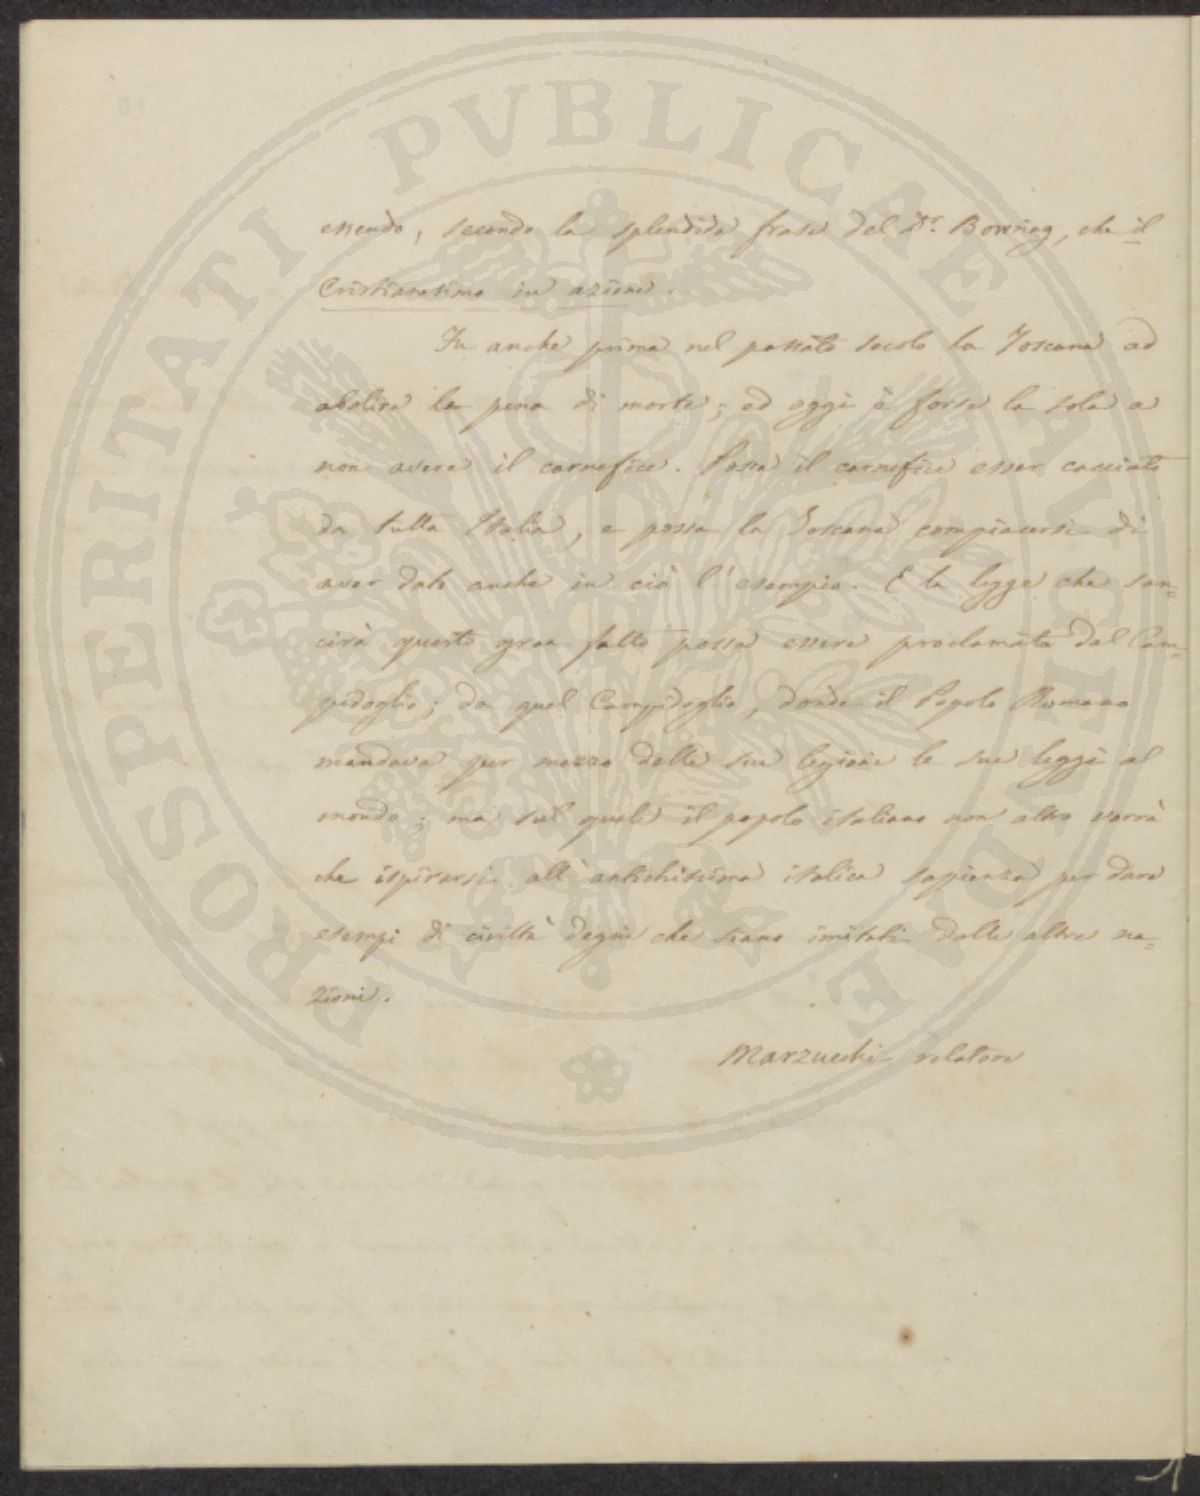 PROSPERITATI PVBLICAE AVGENDAE
essendo, secondo la splendida frase del Dr. Bowring, che il
Cristianesimo in azione.
Fu anche prima nel passato secolo la Toscana ad
abolire la pena di morte; ed oggi è forse la sola a
non avere il carnefice. Possa il carnefice esser cacciato
da tutta Italia, e possa la Toscana compiacersi di
aver dato anche in ciò l'esempio. E la legge che san=
cirà questo gran fatto possa essere proclamata dal Cam=
pidoglio; da quel Campidoglio, donde il Popolo Romano
mandava per mezzo delle sue legioni le sue leggi al
mondo; ma sul quale il popolo italiano non altro vorrà
che ispirarsi all'antichissima italica sapienza per dare
esempi di civiltà degni che siano imitati dalle altre na=
zioni.
Marzucchi relatore